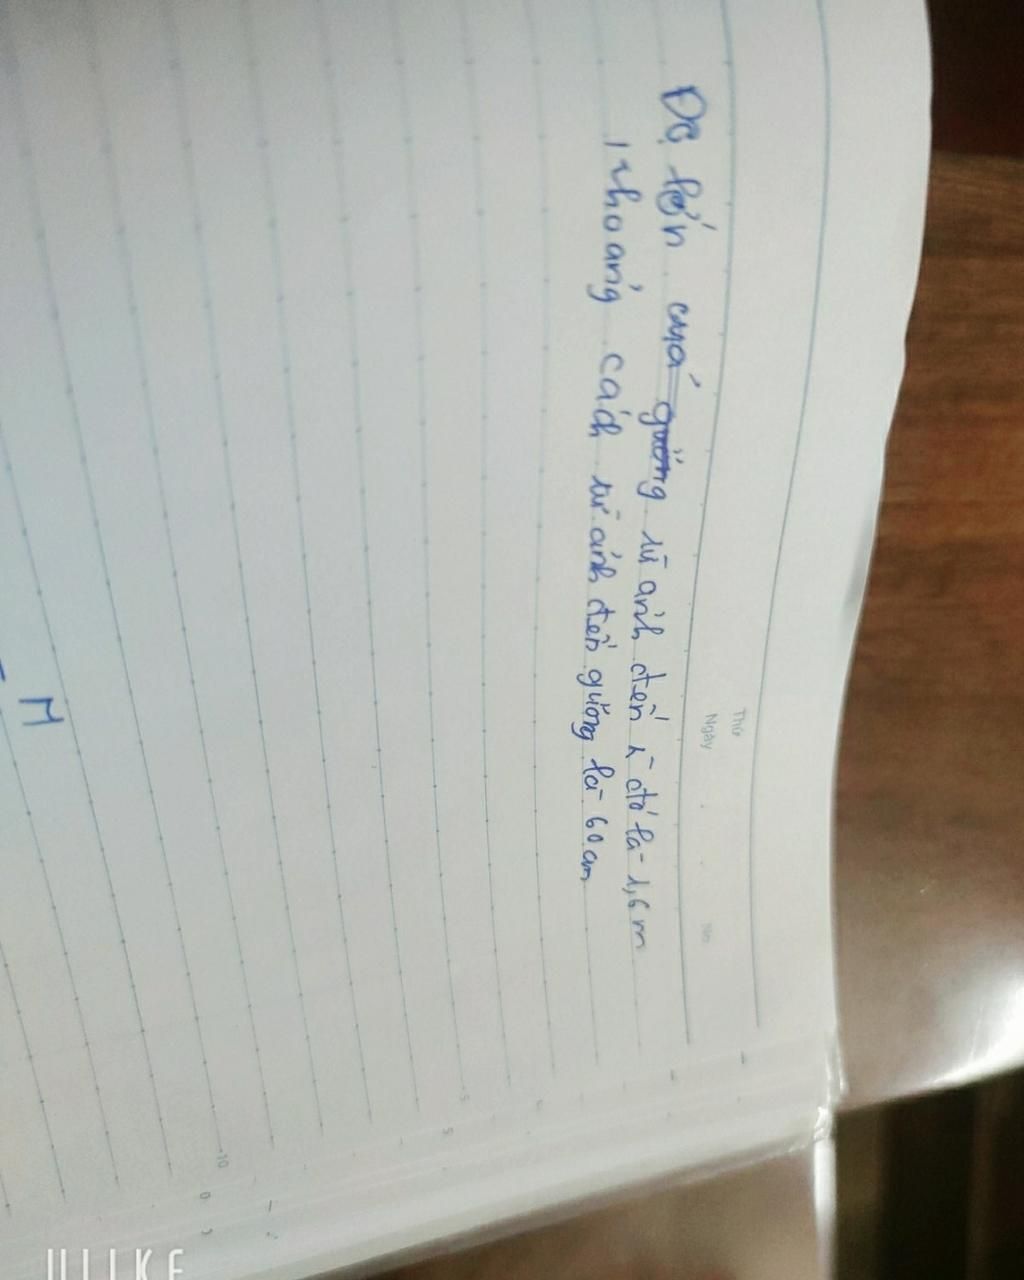 Thứ
Ngày No
Độ lớn của gương từ ảnh đến đó là 1,6 m
khoảng cách từ ảnh đến gương là 60 cm
M
5
10
0
ULIKE